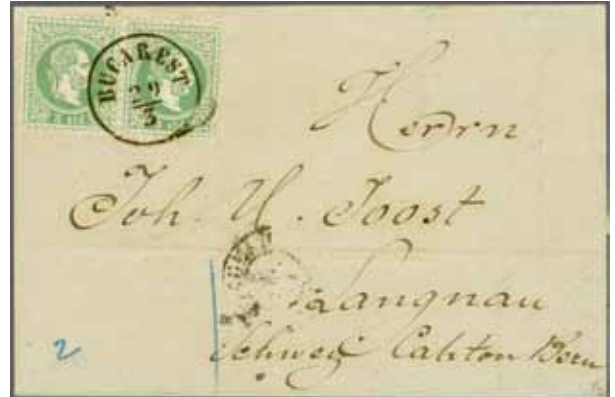 BUCAREST
29/3
Herrn
Joh. U. Joost
Langnau
Schweiz Canton Bern
2